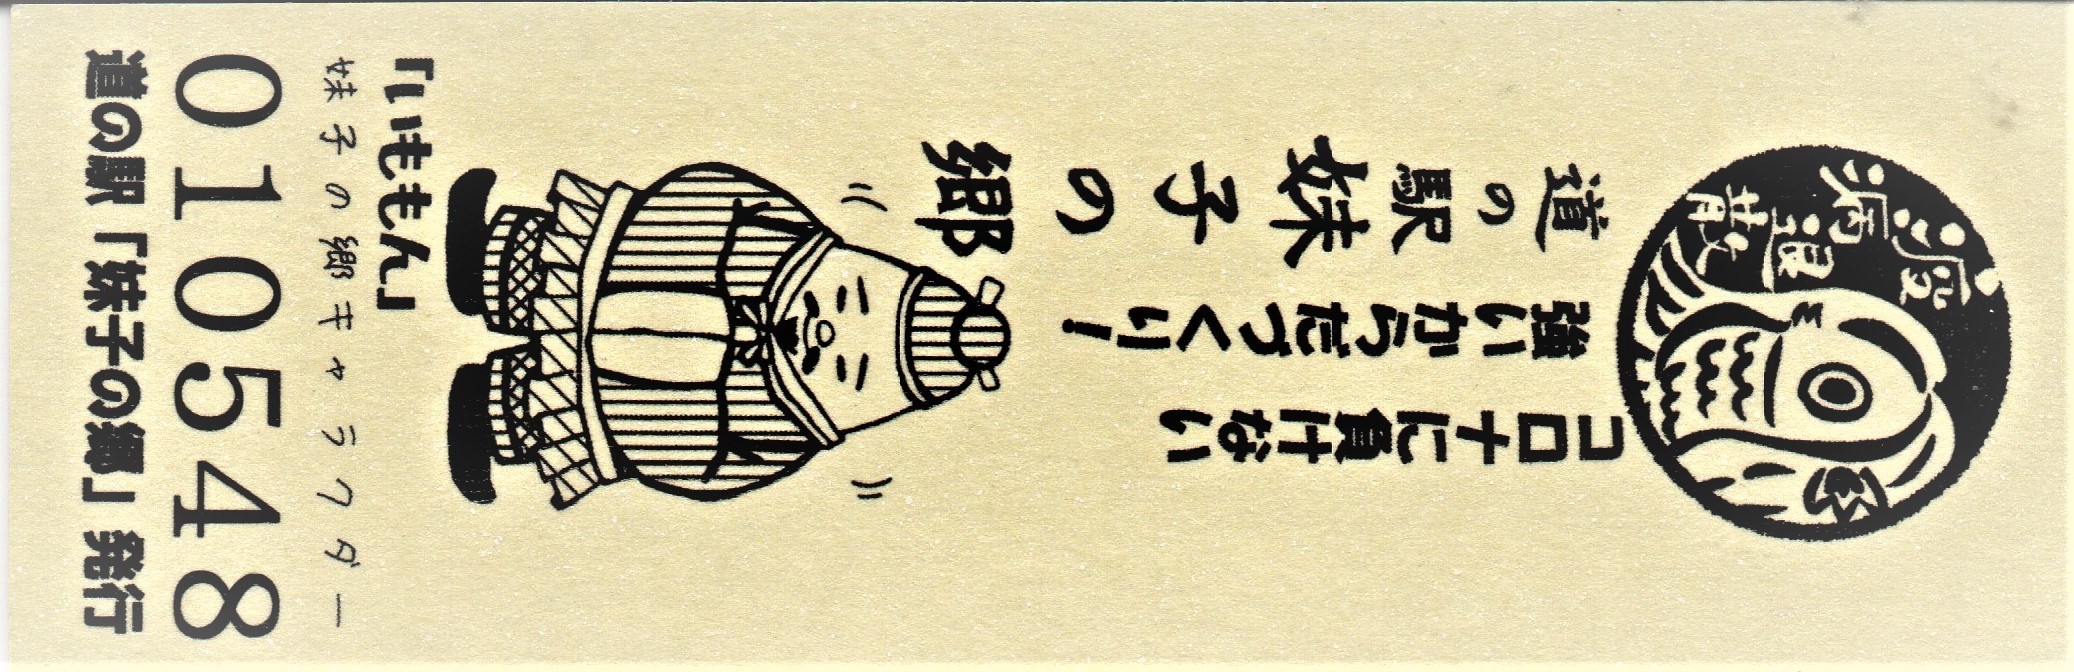 疫病退散
コロナに負けない
強いからだづくり！
道の駅妹子の郷
「いももん」
妹子の郷キャラクター
010548
道の駅「妹子の郷」発行